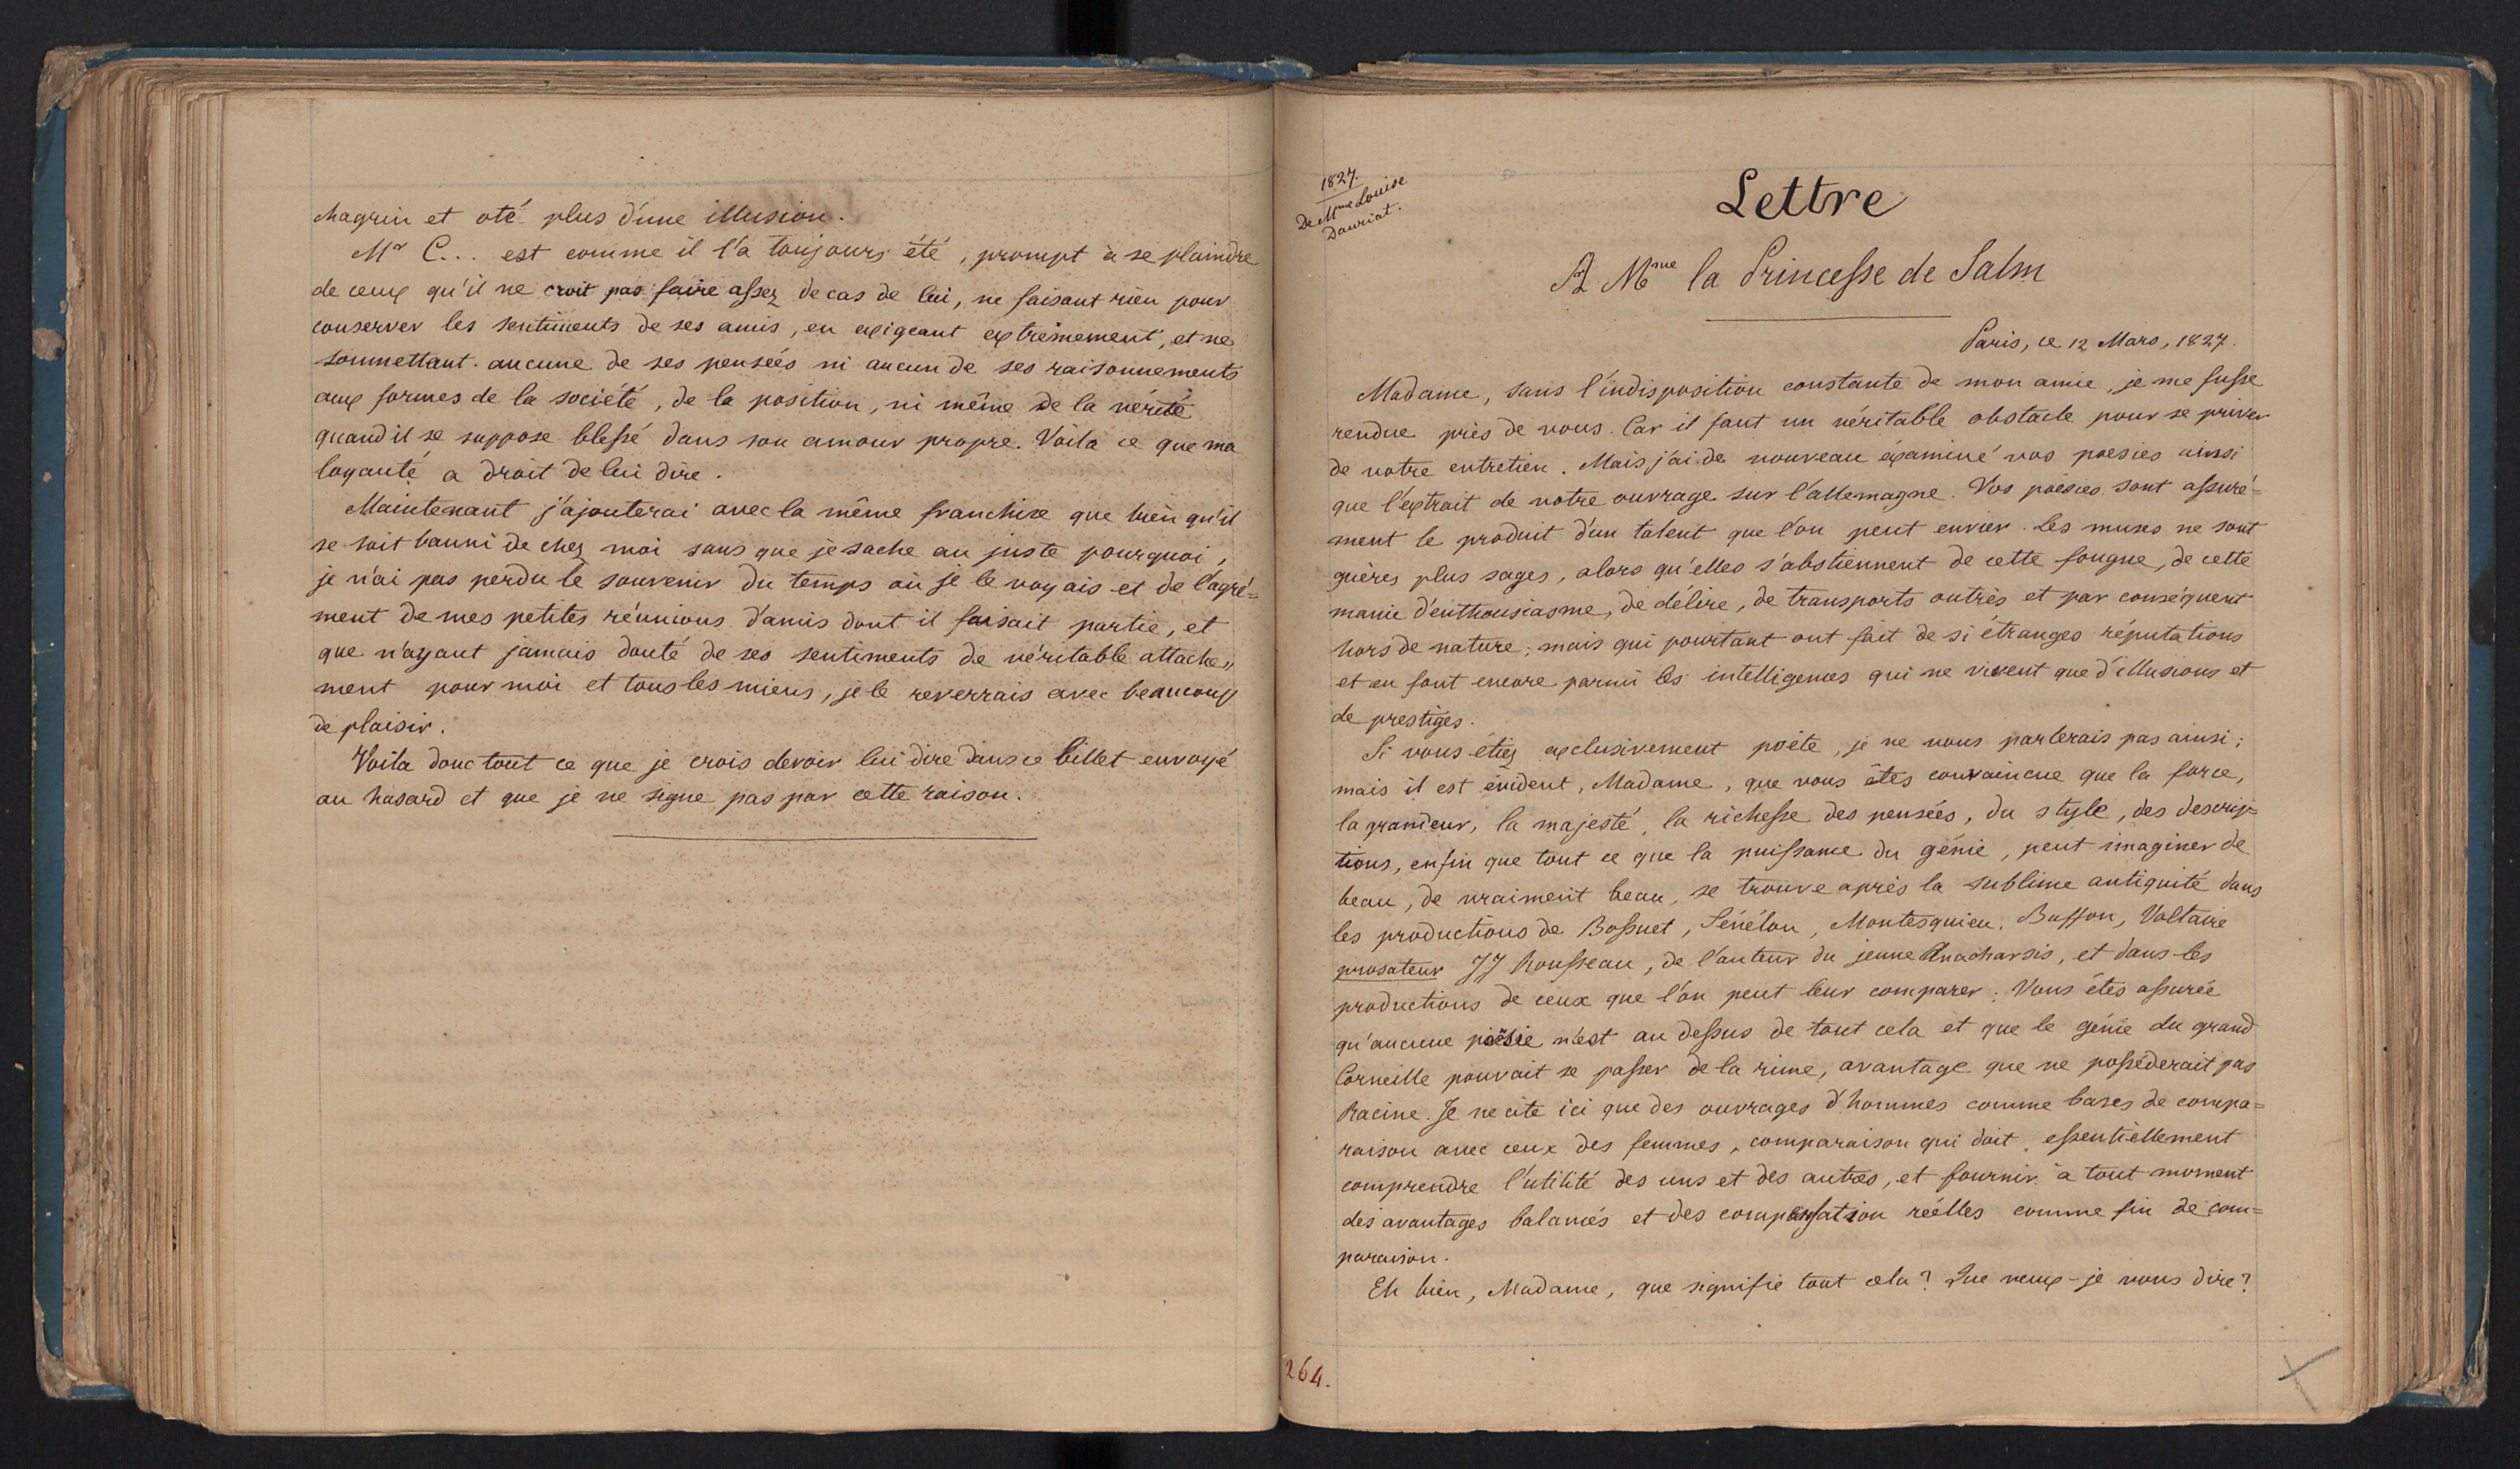 chagrin et oté plus d'une illusion.
Mr C... est comme il l'a toujours été, prompt à se plaindre
de ceux qu'il ne croit pas faire assez de cas de lui, ne faisant rien pour
conserver les sentiments de ses amis, en exigeant extrêmement, et ne
soumettant aucune de ses pensées ni aucun de ses raisonnements
aux formes de la société, de la position, ni même de la vérité
quand il se suppose blessé dans son amour propre. Voilà ce que ma
loyauté a droit de lui dire.
Maintenant j'ajouterai avec la même franchise que bien qu'il
se soit banni de chez moi sans que je sache au juste pourquoi,
je n'ai pas perdu le souvenir du temps où je le voyais et de l'agré=
ment de mes petites réunions d'amis dont il faisait partie, et
que n'ayant jamais douté de ses sentiments de véritable attache"
ment pour moi et tous les miens, je le reverrais avec beaucoup
de plaisir.
Voilà donc tout ce que je crois devoir lui dire dans ce billet envoyé
au hasard et que je ne signe pas par cette raison.
1827.
De Mme Louise
Dauriat.
Lettre
A Mme la Princesse de Salm
Paris, ce 12 Mars, 1827.
Madame, sans l'indisposition constante de mon amie, je me fusse
rendue près de vous. Car il faut un véritable obstacle pour se priver
de votre entretien. Mais j'ai de nouveau éxaminé vos poesies ainsi
que l'extrait de votre ouvrage sur l'allemagne. Vos poésies sont assuré=
ment le produit d'un talent que l'on peut envier. Les muses ne sont
guères plus sages, alors qu'elles s'abstiennent de cette fougue, de cette
manie d'enthousiasme, de délire, de transports outrés et par conséquent
hors de nature; mais qui pourtant ont fait de si étranges réputations
et en font encore parmi les intelligences qui ne vivent que d'illusions et
de prestiges.
Si vous étiez exclusivement poëte, je ne vous parlerais pas ainsi;
mais il est évident, Madame, que vous êtes convaincue que la force,
la grandeur, la majesté, la richesse des pensées, du style, des descrip=
tions, enfin que tout ce que la puissance du génie, peut imaginer de
beau, de vraiment beau, se trouve après la sublime antiquité dans
les productions de Bossuet, Fénélon, Montesquieu, Buffon, Voltaire
prosateur JJ Rousseau, de l'auteur du jeune Anacharsis, et dans les
productions de ceux que l'on peut leur comparer; Vous êtes assurée
qu'aucune poësie n'est au dessus de tout cela et que le génie du grand
Corneille pouvait se passer de la rime, avantage que ne posséderait pas
Racine. Je ne cite ici que des ouvrages d'hommes comme bases de compa=
raison avec ceux des femmes, comparaison qui doit essentiellement
comprendre l'utilité des uns et des autres, et fournir à tout moment
des avantages balancés et des compensation réélles comme fin de com=
paraison.
Eh bien, Madame, que signifie tout cela? Que veux-je vous dire?
264.